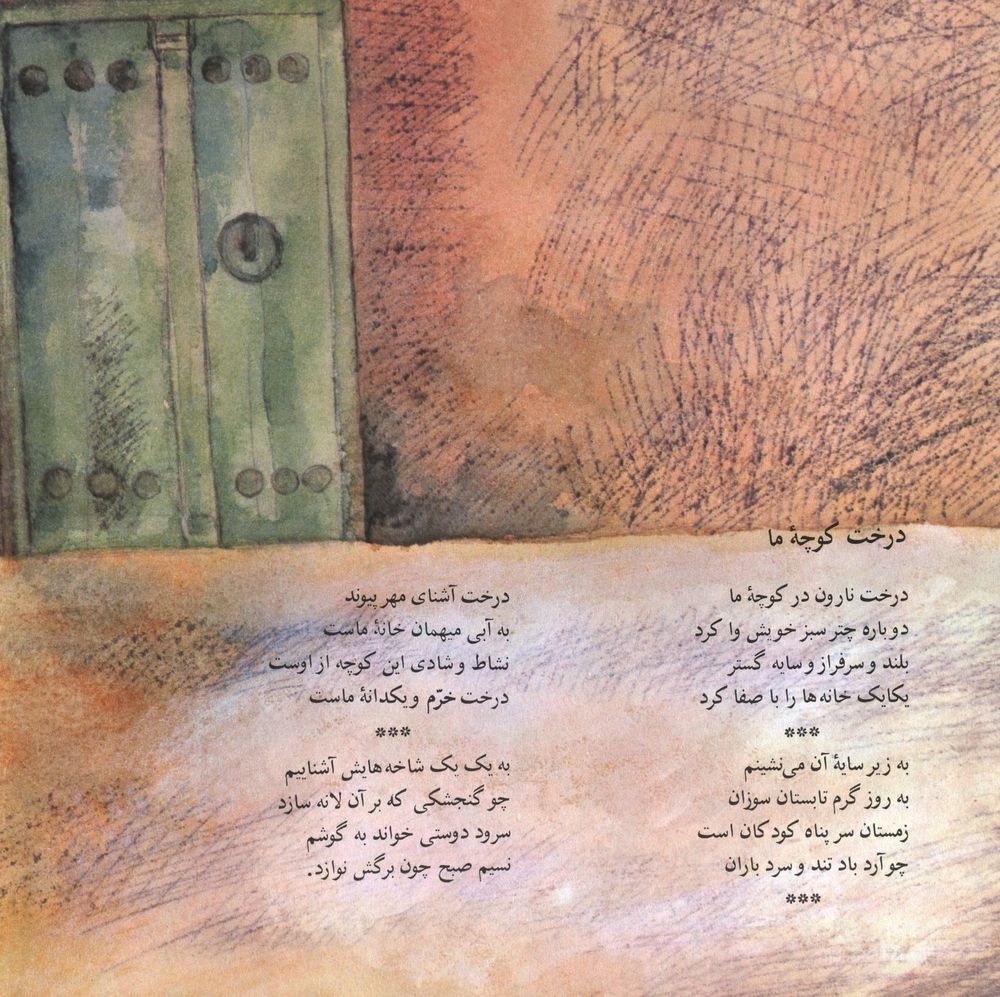 درخت کوچۀ ما
درخت نارون در کوچۀ ما
دوباره چتر سبز خویش وا کرد
بلند و سرفراز و سایه گستر
یکایک خانه‌ها را با صفا کرد
***
به زیر سایۀ آن می‌نشینم
به روز گرم تابستان سوزان
زمستان سر پناه کودکان است
چو آرد باد تند و سرد باران
***
درخت آشنای مهر پیوند
به آبی میهمان خانۀ ماست
نشاط و شادی این کوچه از اوست
درخت خرّم و یکدانۀ ماست
***
به یک یک شاخه‌هایش آشناییم
چو گنجشکی که بر آن لانه سازد
سرود دوستی خواند به گوشم
نسیم صبح چون برگش نوازد.